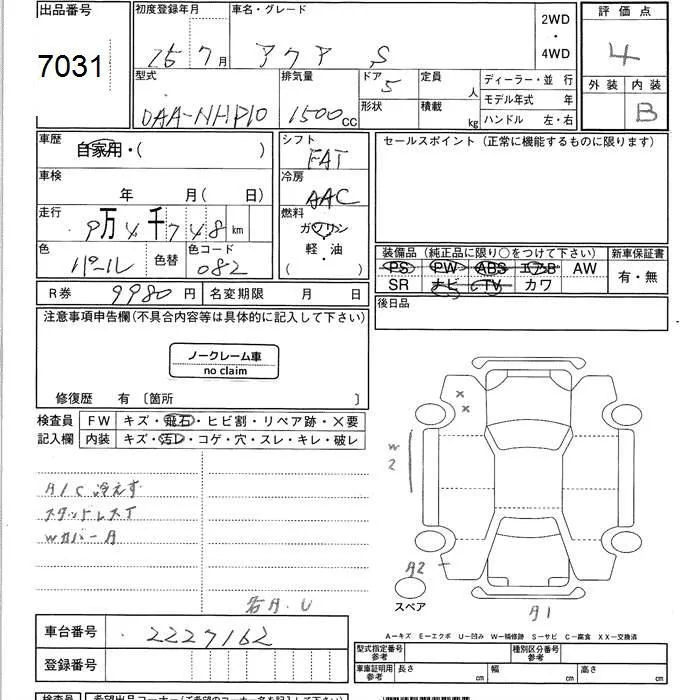 出品番号
7031
初度登録年月
25 7 月
車名・グレード
アクア S
2WD
・
4WD
評価点
4
外装 内装
B
型式
DAA-NHP10
排気量
1500 cc
ドア
5
形状
定員
人
積載
kg
ディーラー・並 行
モデル年式 年
ハンドル 左・右
車歴
自家用・( )
車検
年 月( 日)
走行
9万4千748 km
色
パール
色替
色コード
082
シフト
FAT
冷房
AAC
燃料
ガソリン
軽・油
( )
セールスポイント(正常に機能するものに限ります)
装備品(純正品に限り○をつけて下さい)
PS PW ABS エアB AW
SR ナビ TV カワ
新車保証書
有・無
後日品
R券 9980 円
名変期限 月 日
注意事項申告欄(不具合内容等は具体的に記入して下さい)
ノークレーム車
no claim
修復歴 有 〔箇所 〕
検査員
記入欄
FW キズ・飛石・ヒビ割・リペア跡・×要
内装 キズ・汚レ・コゲ・穴・スレ・キレ・破レ
A/C 冷えず
スタッドレスT
Wカバー A
各A.U
×
×
W
2
A2
スペア
A1
A-キズ E-エクボ U-凹み W-補修跡 S-サビ C-腐食 XX-交換済
車台番号
2227162
登録番号
型式指定番号
参考
種別区分番号
参考
車庫証明用
参考
長さ cm
幅 cm
高さ cm
検査員
希望出品コーナー(ご希望のコーナー名を記入して下さい)